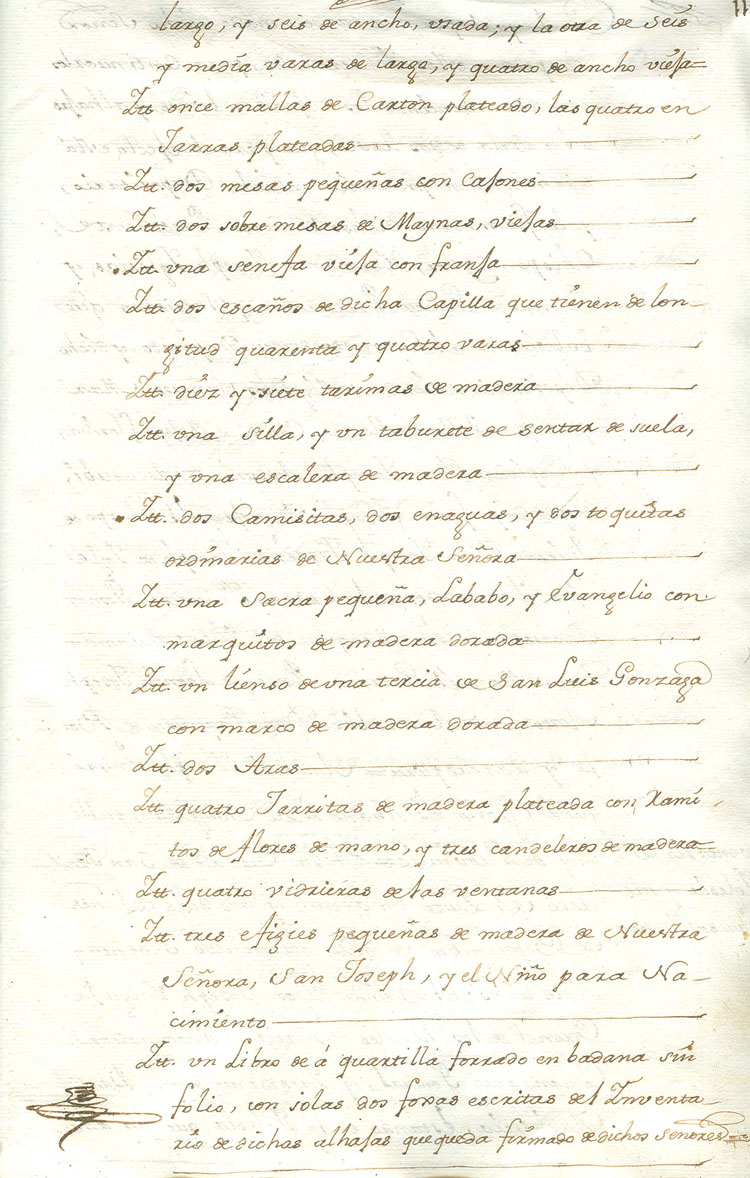 11
largo, y seis de ancho, usada; y la otra de seis
y media varas de largo, y quatro de ancho viesa=
Itt. once mallas de Carton plateado, las quatro en
Jarras plateadas
Itt. dos mesas pequeñas con casones
Itt. dos sobre mesas de Maynas, viesas
Itt. vna senefa viesa con fransa
Itt. dos escaños de dicha Capilla que tienen de lon-
gitud quarenta y quatro varas
Itt. diez y siete tarimas de madera
Itt. vna silla, y vn taburete de sentar de suela,
y vna escalera de madera
Itt. dos Camisitas, dos enaguas, y dos toquitas
ordinarias de Nuestra Señora
Itt. vna Sacra pequeña, Lababo, y Evangelio con
marquitos de madera dorada
Itt. vn lienso de vna tercia de San Luis Gonzaga
con marco de madera dorada
Itt. dos Aras
Itt. quatro Jarritas de madera plateada con Rami-
tos de flores de mano, y tres candeleros de madera=
Itt. quatro vidrieras de las ventanas
Itt. tres efigies pequeñas de madera de Nuestra
Señora, San Joseph, y el Niño para Na-
cimiento
Itt. vn Libro de á quartilla forrado en badana sin
folio, con solas dos foxas escritas del Inventa-
rio de dichas alhasas que queda firmado de dichos Señores=